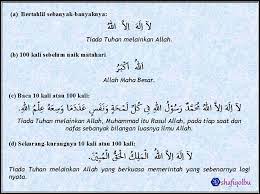 (a) Bertahlil sebanyak-banyaknya:
لَا إِلٰهَ إِلَّا اللهُ
Tiada Tuhan melainkan Allah.
(b) 100 kali sebelum naik matahari
اللهُ أَكْبَرُ
Allah Maha Besar.
(c) Baca 10 kali atau 100 kali:
لَا إِلٰهَ إِلَّا اللهُ مُحَمَّدٌ رَسُوْلُ اللهِ فِي كُلِّ لَمْحَةٍ وَنَفَسٍ عَدَدَمَا وَسِعَهُ عِلْمُ اللهِ.
Tiada Tuhan melainkan Allah, Muhammad itu Rasul Allah, pada tiap saat dan
nafas sebanyak bilangan luasnya ilmu Allah.
(d) Sekurang-kurangnya 10 kali atau 100 kali:
لَا إِلٰهَ إِلَّا اللهُ الْمَلِكُ الْحَقُّ الْمُبِيْنُ.
Tiada Tuhan melainkan Allah yang berkuasa memerintah yang sebenarnya lagi
nyata.
shafiqolbu